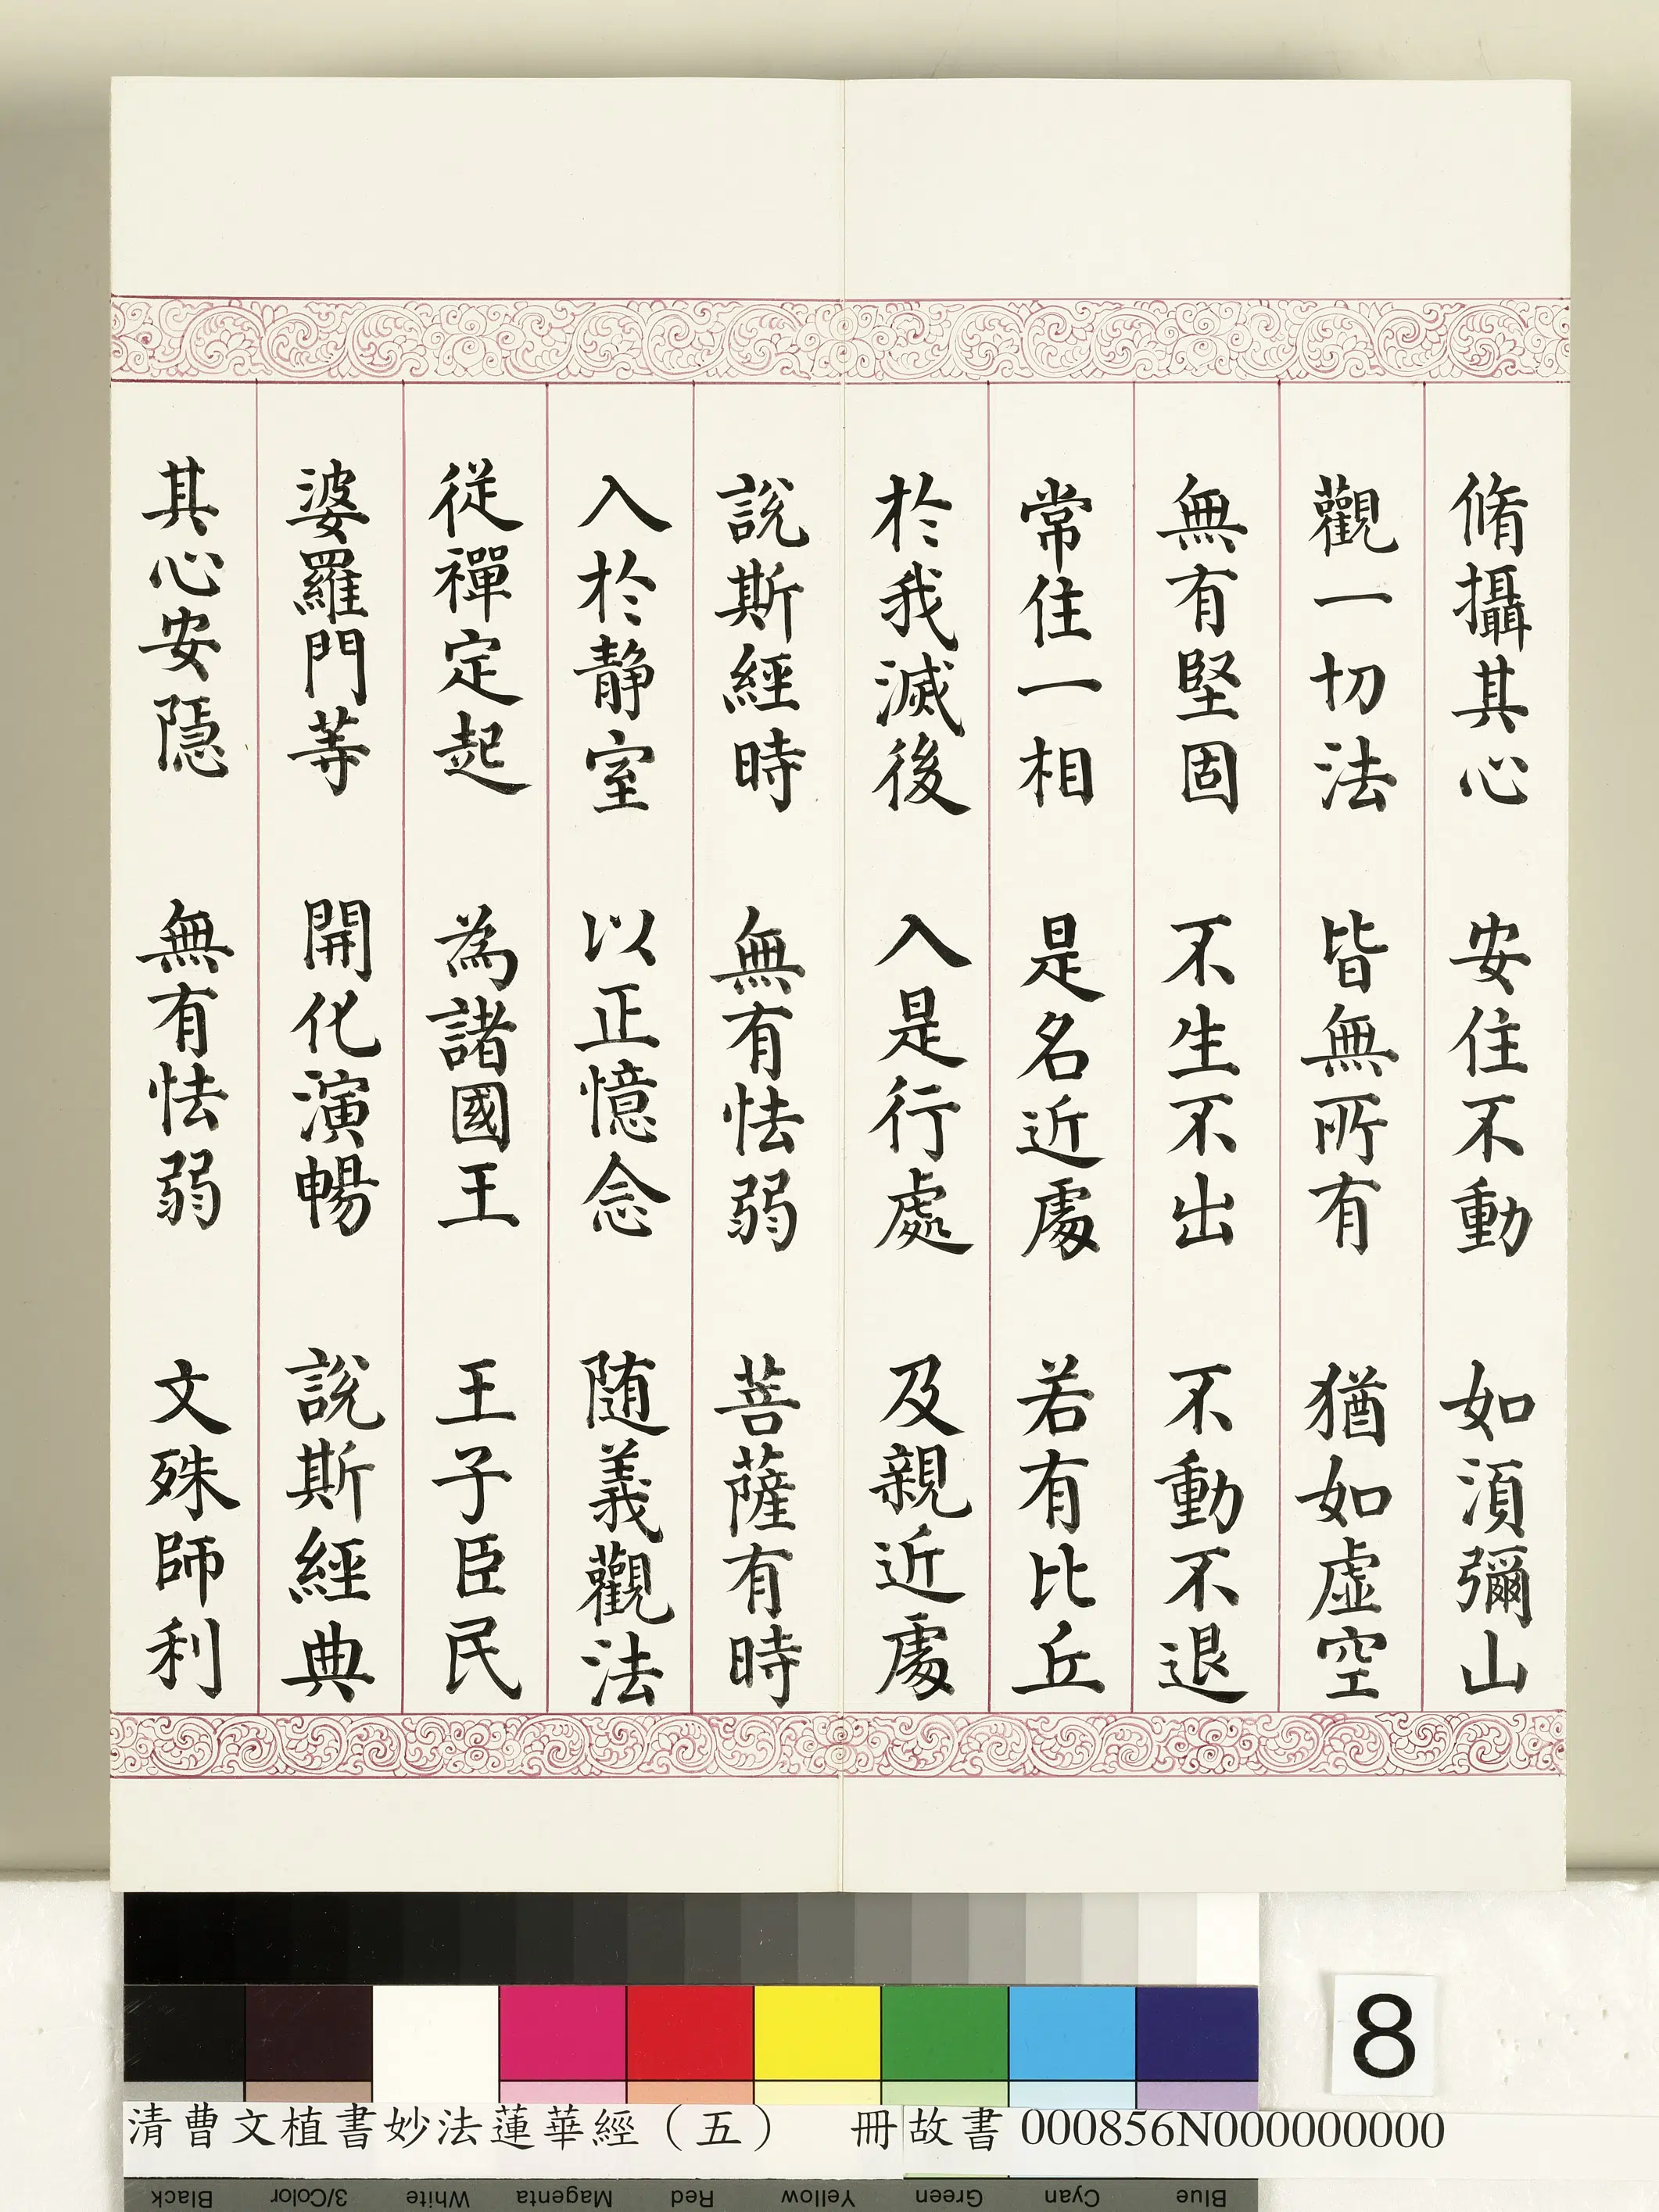 脩攝其心 安住不動 如湏彌山
觀一切法 皆無所有 猶如虛空
無有堅固 不生不出 不動不退
常住一相 是名近處 若有比丘
於我滅後 入是行處 及親近處
說斯經時 無有怯弱 菩薩有時
入於靜室 以正憶念 随義觀法
從禪定起 為諸國王 王子臣民
婆羅門等 開化演暢 說斯經典
其心安隱 無有怯弱 文殊師利
8
清曹文植書妙法蓮華經（五） 冊故書 000856N000000000
Black 3/Color White Magenta Red Yellow Green Cyan Blue